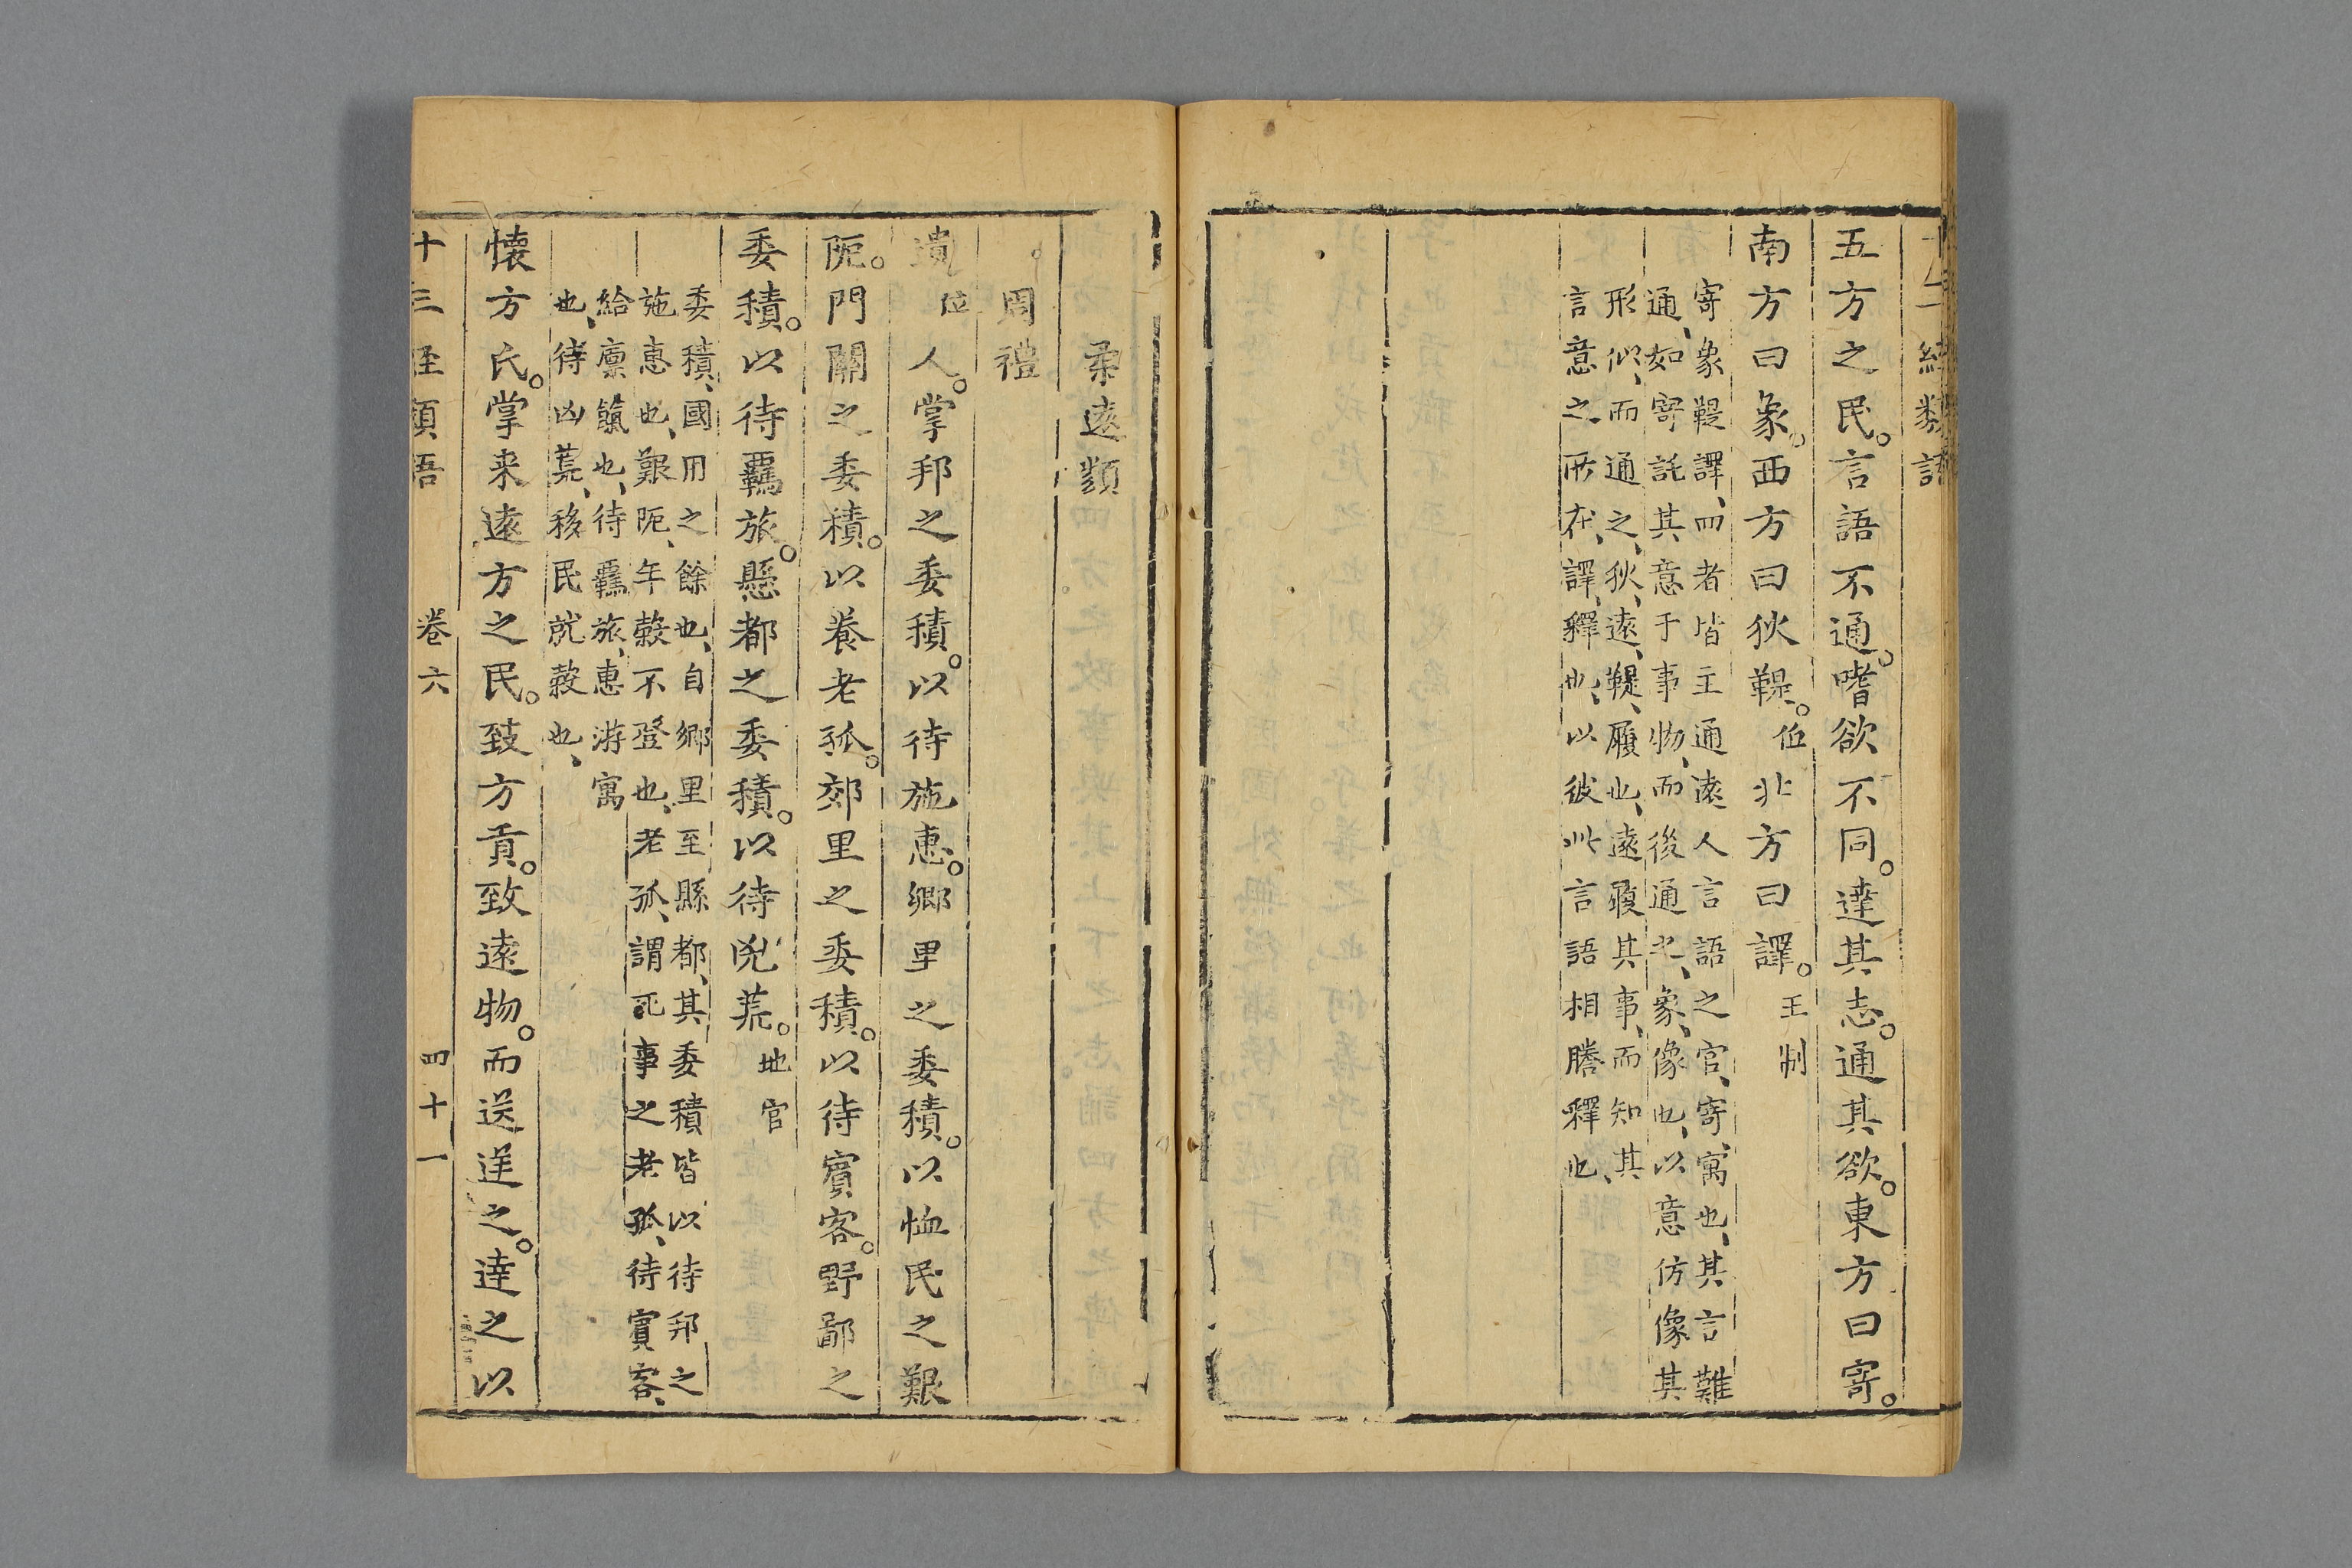 十三經類語
五方之民。言語不通。嗜欲不同。達其志。通其欲。東方曰寄。
南方曰象。西方曰狄鞮。位北方曰譯。王制
寄、象鞮譯、四者皆主通遠人言語之官、寄、寓也、其言難
通、如寄託其意于事物、而後通之、象、像也、以意仿像其
形似、而通之、狄、遠、鞮、履也、遠履其事、而知其
言意之所在、譯、釋也、以彼此言語相謄釋也、
柔遠類
周禮
遺位人。掌邦之委積。以待施惠。鄉里之委積。以恤民之艱
阨。門關之委積。以養老孤。郊里之委積。以待賓客。野鄙之
委積。以待羈旅。懸都之委積。以待凶荒。地官
委積、國用之餘也、自鄉里至縣都、其委積皆以待邦之
施惠也、艱阨、年穀不登也、老孤、謂死事之老孤、待賓客、
給廩餼也、待羈旅、惠游寓
也、待凶荒、移民就穀也、
懷方氏。掌来遠方之民。致方貢。致遠物。而送逆之。達之以
十三經類語 卷六 四十一